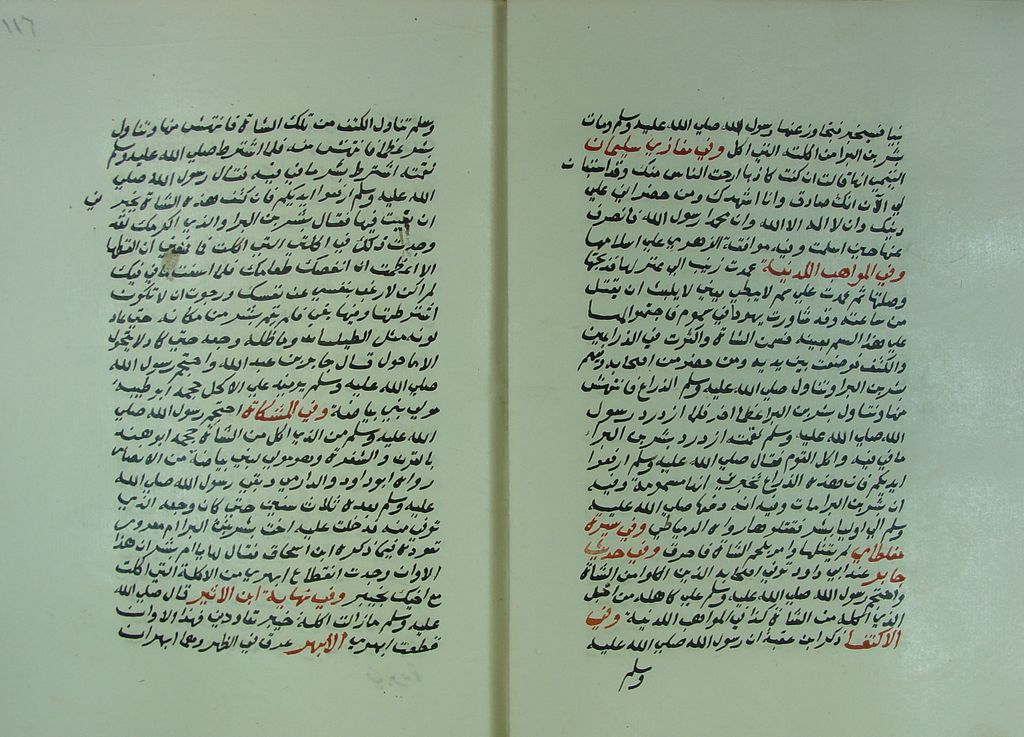 نبيا فسيخبر فتجاوز عنها رسول الله صلى الله عليه وسلم ومات
بشر بن البرا من اكلته التي اكل وفي مغازي سليمان
التيمي انها قالت ان كنت كاذبا ارحت الناس منك وقد استبان
لي الآن انك صادق وانا اشهدك ومن حضر اني على
دينك وان لا اله الا الله وان محمدا رسول الله فانصرف
عنها حين اسلمت وفيه موافقة الزهري على اسلامها
وفي المواهب اللدنية عمدت زينب الى عنز لها فذبحتها
وصلتها ثم عمدت على سم لا يبطي يعني لا يلبث ان يقتل
من ساعته وقد شاورت يهودا في سموم فاجتمعوا لها
على هذا السم بعينه فسمت الشاة واكثرت في الذراعين
والكتف فوضعت بين يديه ومن حضر من اصحابه وفيهم
بشر بن البرا وتناول صلى الله عليه وسلم الذراع فانتهش
منها وتناول بشر بن البرا عظما اخر فلما ازدرد رسول
الله صلى الله عليه وسلم لقمته ازدرد بشر بن البرا
ما في فيه واكل القوم فقال صلى الله عليه وسلم ارفعوا
ايديكم فان هذه الذراع تخبرني انها مسمومة وفيه
ان بشر بن البرا مات وفيه انه دفعها صلى الله عليه
وسلم الى اوليا بشر فقتلوها رواه الدمياطي وفي سيرة
مغلطاي لم يقتلها وامر بلحم الشاة فاحرق وفي حديث
جابر عند ابي داود توفي اصحابه الذين اكلوا من الشاة
واحتجم رسول الله صلى الله عليه وسلم على كاهله من اجل
الذي اكله من الشاة كذا في المواهب اللدنية وفي
الاكتفا ذكر ابن عقبة ان رسول الله صلى الله عليه
وسلم
١١٦
وسلم تناول الكتف من تلك الشاة فانتهش منها وتناول
بشر عظما فانتهش منه فلما اشترط صلى الله عليه وسلم
لقمته اشترط بشر ما في فيه فقال رسول الله صلى
الله عليه وسلم ارفعوا ايديكم فان كتف هذه الشاة تخبرني
ان بغيت فيها فقال بشر بن البرا والذي اكرمك لقد
وجدت ذلك في اكلتي التي اكلت فما منعني ان القطها
الا اعظمت ان انغصك طعامك فلما اسغت ما في فيك
لم اكن لارغب بنفسي عن نفسك ورجوت ان لا تكون
اشترطتها وفيها بغي فلم يقم بشر من مكانه حتى عاد
لونه مثل الطيلسان وماطله وجعه حتى كان لا يتحول
الا ما حول قال جابر بن عبد الله واحتجم رسول الله
صلى الله عليه وسلم يومئذ على الكاحل حجمه ابو طيبة
مولى بني بياضة وفي المشكاة احتجم رسول الله صلى
الله عليه وسلم من الذي اكل من الشاة حجمه ابو هند
بالقرن والشفرة وهو مولى لبني بياضة من الانصار
رواه ابو داود والدارمي وبقي رسول الله صلى الله
عليه وسلم بعده ثلاث سنين حتى كان وجعه الذي
توفي منه فدخلت عليه اخت بشر بن البرا ام معرور
تعوده فيما ذكره ابن اسحاق فقال لها يا ام بشر ان هذا
الاوان وجدت انقطاع ابهري من الاكلة التي اكلت
مع اخيك بخيبر وفي نهاية ابن الاثير قال صلى الله
عليه وسلم ما زالت اكلة خيبر تعاودني فهذا الاوان
قطعت ابهري الابهر عرق في الظهر وهما ابهران